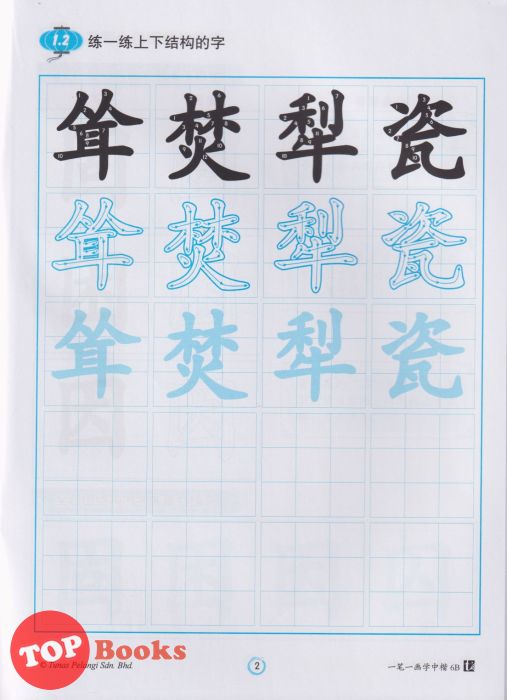 1.2 练一练上下结构的字
耸 焚 犁 瓷
耸 焚 犁 瓷
耸 焚 犁 瓷
TOP Books
© Tunas Pelangi Sdn. Bhd. 2 一笔一画学中楷 6B